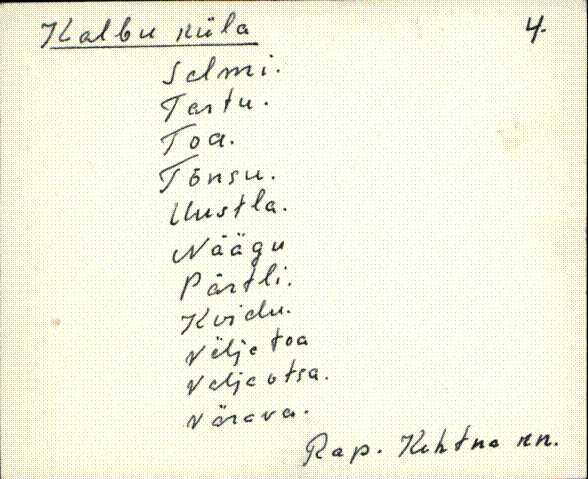 Kalbu küla 4.
Selmi.
Tartu.
Toa.
Tõnsu.
Uustla.
Näägu
Pärtli.
Kvidu.
Välje toa
Välja otsa.
Värava.
Rap. Kehtna kn.